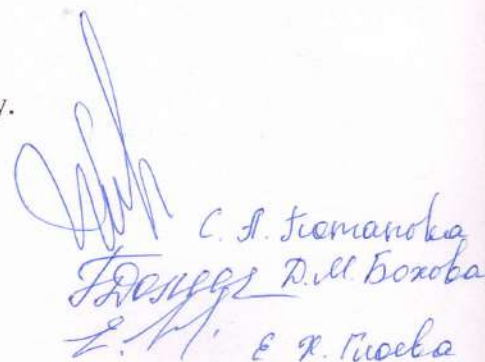 у.
С. А. Потапова
Д.М. Бохова
Е Х. Гиоева